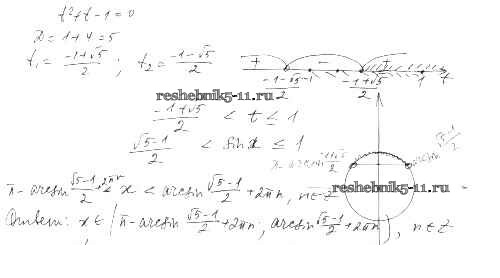 t² + t - 1 = 0
D = 1 + 4 = 5
t₁ = (-1+√5)/2 ; t₂ = (-1-√5)/2
+ - +
(-1-√5)/2 -1 (-1+√5)/2 1 t
reshebnik5-11.ru
(-1+√5)/2 < t ≤ 1
(√5-1)/2 < sin x ≤ 1
arcsin (√5-1)/2
π - arcsin (√5-1)/2 + 2πn < x < arcsin (√5-1)/2 + 2πn, n ∈ Z
reshebnik5-11.ru
Ответ: x ∈ (π - arcsin (√5-1)/2 + 2πn ; arcsin (√5-1)/2 + 2πn), n ∈ Z